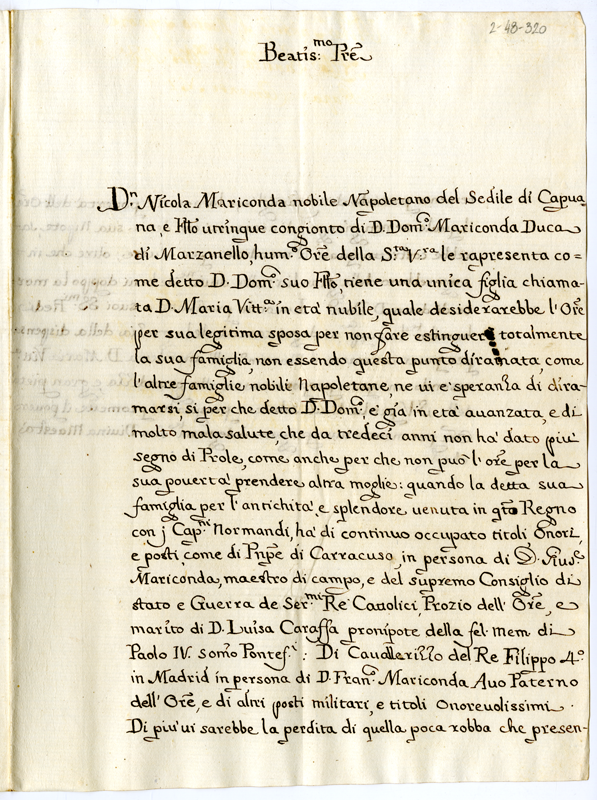 2-48-320
Beatis:mo Pre
Dn Nicola Mariconda nobile Napoletano del Sedile di Capua-
na, e Fſto utrinque congionto di D. Domo Mariconda Duca
di Marzanello, humo Ore della S.ra V.ra le rapresenta co=
me detto D. Domo suo Fſto, tiene una unica figlia chiama-
ta D. Maria Vitta in età nubile, quale desiderarebbe l'Ore
per sua legitima sposa per non fare estinguere totalmente
la sua famiglia, non essendo questa punto diramata, come
l'altre famiglie nobili Napoletane, ne vi e' speranza di dira-
marsi, si per che detto D. Domo, e' già in età auanzata, e di
molto mala salute, che da tredeci anni non ha' dato più
segno di Prole, come anche per che non può l'ore per la
sua pouertà prendere altra moglie: quando la detta sua
famiglia per l'antichità, e splendore venuta in qto Regno
con j Capni Normandi, ha' di continuo occupato titoli, Onori,
e posti, come di Pnpe di Carracuso, in persona di D. Giuse
Mariconda, maestro di campo, e del supremo Consiglio di
stato e Guerra de Sermi Re' Catolici, Prozio dell'Ore, e
marito di D. Luisa Caraffa pronipote della fel. mem. di
Paolo IV. somo Pontef.e: Di Cauallerizzo del Re Filippo 4.o
in Madrid in persona di D. Frano Mariconda Auo Paterno
dell'Ore, e di altri posti militari, e titoli onoreuolissimi.
Di più ui sarebbe la perdita di quella poca robba che presen-